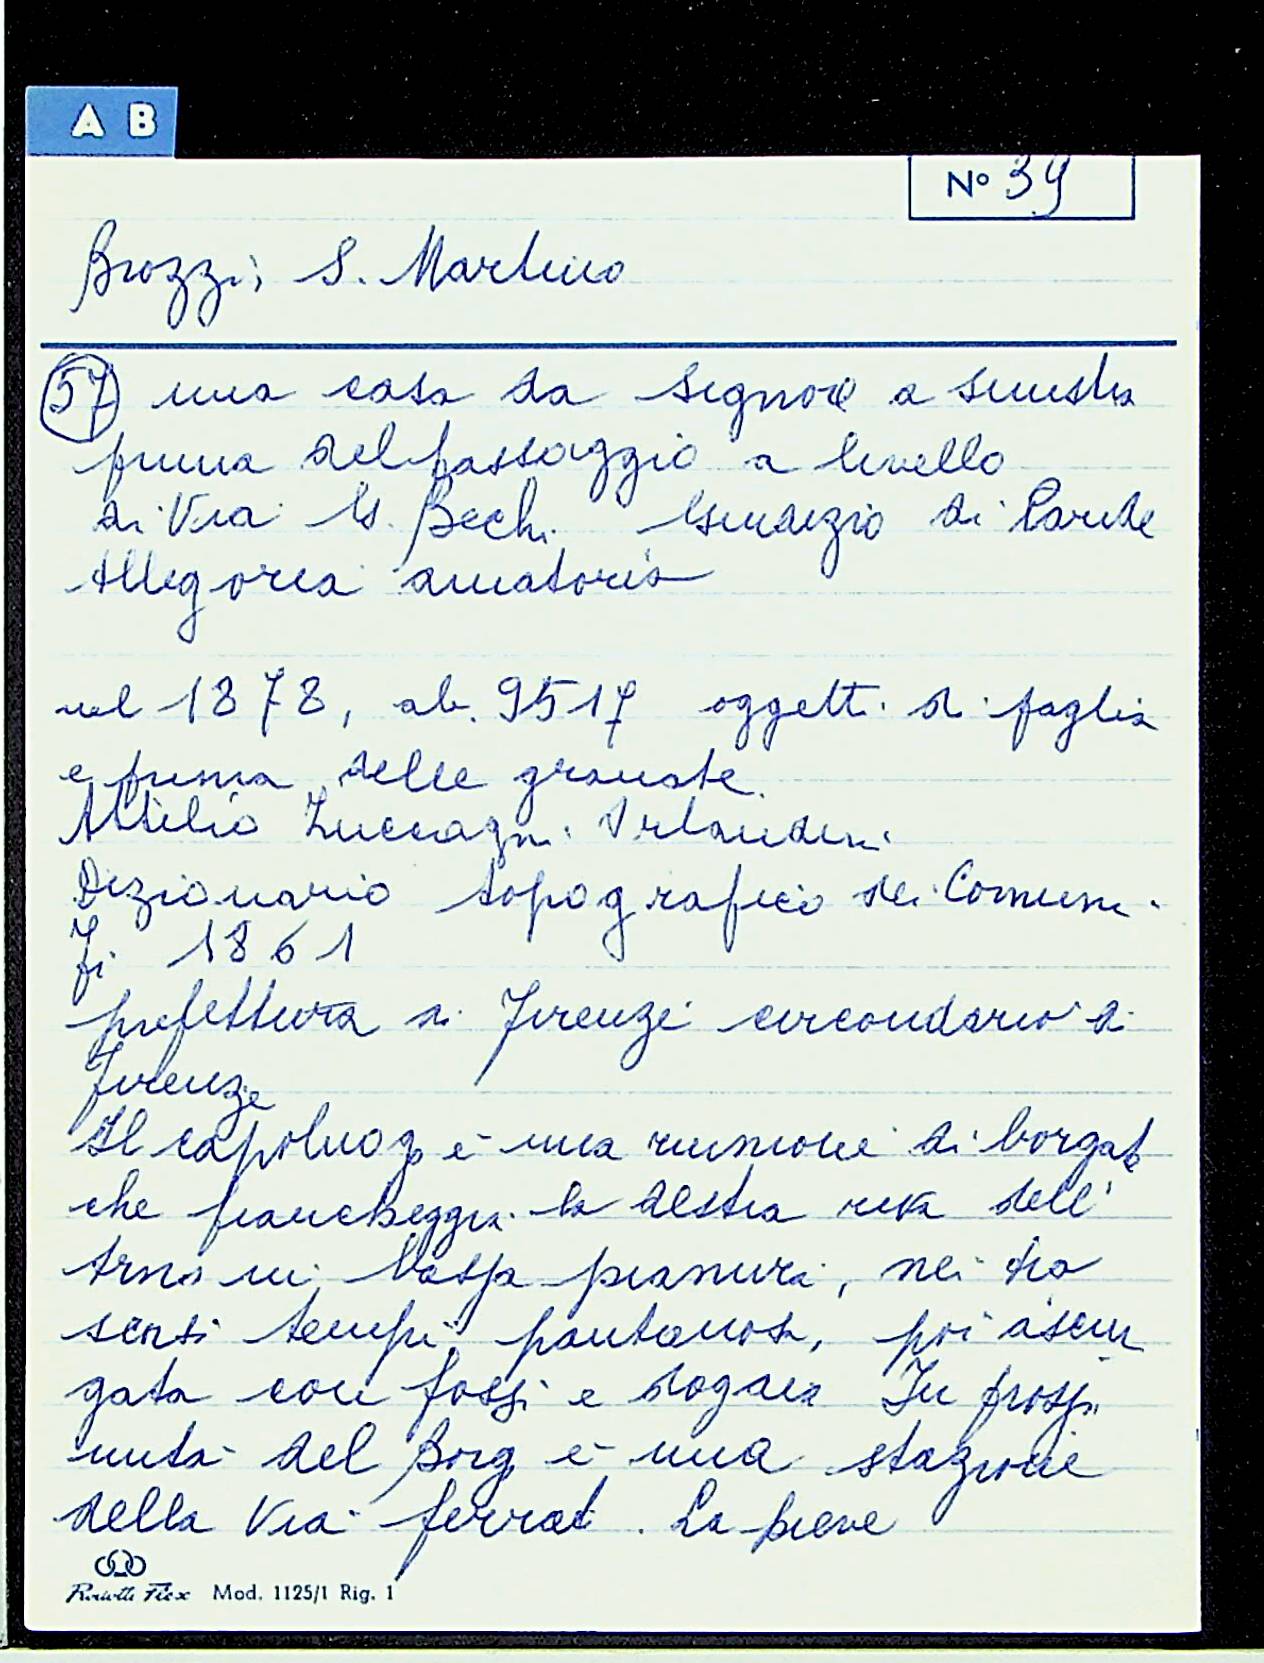 A B
N° 39
Brozzi, S. Martino
57 una casa da signore a sinistra
prima del passaggio a livello
di Via G. Bechi Giudizio di Paride
Allegoria amatoria
nel 1878, ab. 9517 oggetti di paglia
e prima delle granate.
Attilio Zuccagni Orlandini
Dizionario topografico dei Comuni
Fi 1861
prefettura di Firenze circondario di
Firenze
Il capoluogo è una riunione di borgate
che fiancheggia la destra riva dell'
Arno in vasta pianura, nei tra
scorsi tempi pantanosa, poi asciu
gata con fossi e dogaia In prossi
mità del Borgo è una stazione
della Via ferrat. La pieve
Mod. 1125/1 Rig. 1